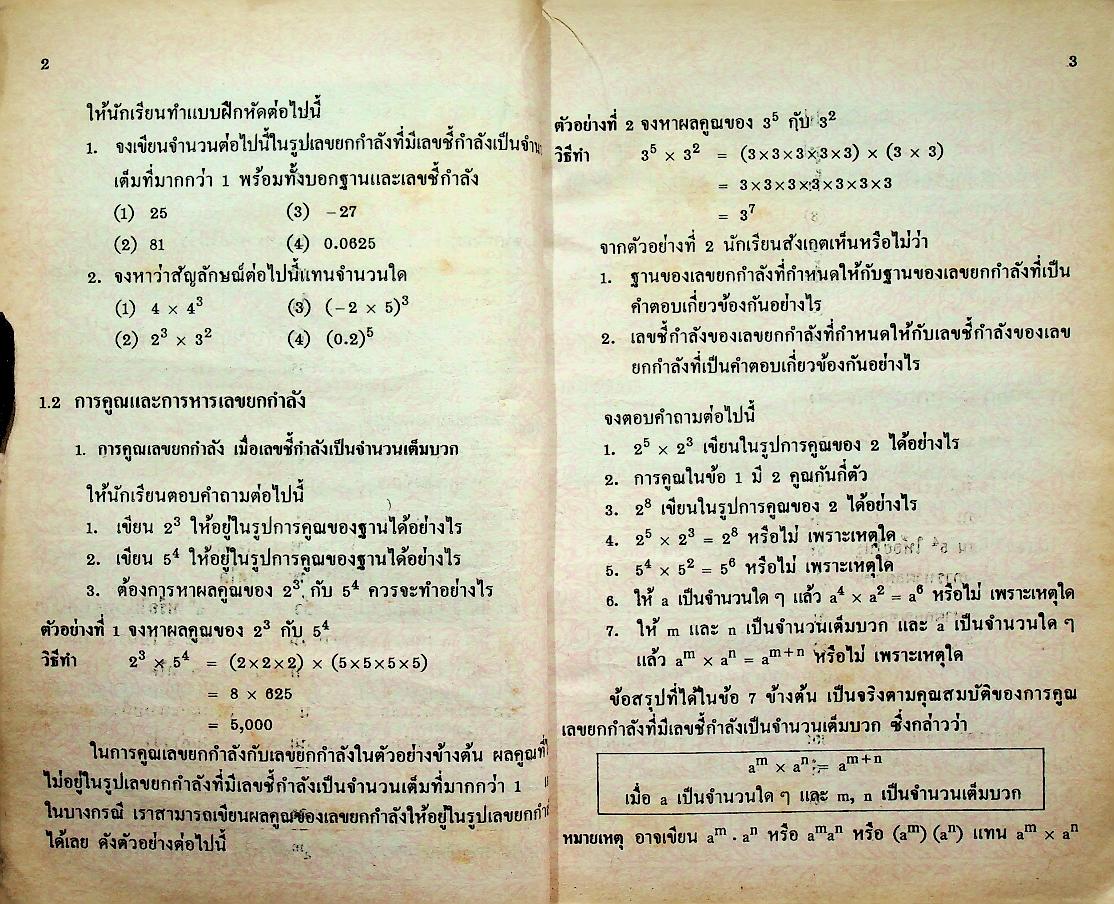 2
ให้นักเรียนทำแบบฝึกหัดต่อไปนี้
1. จงเขียนจำนวนต่อไปนี้ในรูปเลขยกกำลังที่มีเลขชี้กำลังเป็น
เต็มที่มากกว่า 1 พร้อมทั้งบอกฐานและเลขชี้กำลัง
(1) 25 (3) −27
(2) 81 (4) 0.0625
2. จงหาว่าสัญลักษณ์ต่อไปนี้แทนจำนวนใด
(1) 4 × 4³ (3) (−2 × 5)³
(2) 2³ × 3² (4) (0.2)⁵
1.2 การคูณและการหารเลขยกกำลัง
1. การคูณเลขยกกำลัง เมื่อเลขชี้กำลังเป็นจำนวนเต็มบวก
ให้นักเรียนตอบคำถามต่อไปนี้
1. เขียน 2³ ให้อยู่ในรูปการคูณของฐานได้อย่างไร
2. เขียน 5⁴ ให้อยู่ในรูปการคูณของฐานได้อย่างไร
3. ต้องการหาผลคูณของ 2³ กับ 5⁴ ควรจะทำอย่างไร
ตัวอย่างที่ 1 จงหาผลคูณของ 2³ กับ 5⁴
วิธีทำ 2³ × 5⁴ = (2×2×2) × (5×5×5×5)
= 8 × 625
= 5,000
ในการคูณเลขยกกำลังกับเลขยกกำลังในตัวอย่างข้างต้น ผลคูณที่
ไม่อยู่ในรูปเลขยกกำลังที่มีเลขชี้กำลังเป็นจำนวนเต็มที่มากกว่า 1
ในบางกรณี เราสามารถเขียนผลคูณของเลขยกกำลังให้อยู่ในรูปเลขยกกำ
ได้เลย ดังตัวอย่างต่อไปนี้
3
ตัวอย่างที่ 2 จงหาผลคูณของ 3⁵ กับ 3²
วิธีทำ 3⁵ × 3² = (3×3×3×3×3) × (3 × 3)
= 3×3×3×3×3×3×3
= 3⁷
จากตัวอย่างที่ 2 นักเรียนสังเกตเห็นหรือไม่ว่า
1. ฐานของเลขยกกำลังที่กำหนดให้กับฐานของเลขยกกำลังที่เป็น
คำตอบเกี่ยวข้องกันอย่างไร
2. เลขชี้กำลังของเลขยกกำลังที่กำหนดให้กับเลขชี้กำลังของเลข
ยกกำลังที่เป็นคำตอบเกี่ยวข้องกันอย่างไร
จงตอบคำถามต่อไปนี้
1. 2⁵ × 2³ เขียนในรูปการคูณของ 2 ได้อย่างไร
2. การคูณในข้อ 1 มี 2 คูณกันกี่ตัว
3. 2⁸ เขียนในรูปการคูณของ 2 ได้อย่างไร
4. 2⁵ × 2³ = 2⁸ หรือไม่ เพราะเหตุใด
5. 5⁴ × 5² = 5⁶ หรือไม่ เพราะเหตุใด
6. ให้ a เป็นจำนวนใด ๆ แล้ว a⁴ × a² = a⁶ หรือไม่ เพราะเหตุใด
7. ให้ m และ n เป็นจำนวนเต็มบวก และ a เป็นจำนวนใด ๆ
แล้ว aᵐ × aⁿ = aᵐ⁺ⁿ หรือไม่ เพราะเหตุใด
ข้อสรุปที่ได้ในข้อ 7 ข้างต้น เป็นจริงตามคุณสมบัติของการคูณ
เลขยกกำลังที่มีเลขชี้กำลังเป็นจำนวนเต็มบวก ซึ่งกล่าวว่า
aᵐ × aⁿ = aᵐ⁺ⁿ
เมื่อ a เป็นจำนวนใด ๆ และ m, n เป็นจำนวนเต็มบวก
หมายเหตุ อาจเขียน aᵐ . aⁿ หรือ aᵐaⁿ หรือ (aᵐ) (aⁿ) แทน aᵐ × aⁿ